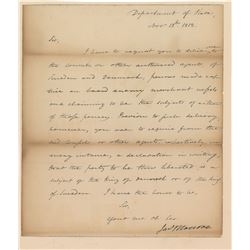 Department of State,
Nov 18th 1812.
Sir,
I have to request you to deliver over to
the consuls or other authorized agents, of
Sweden and Denmark, persons made cap-
tive on board enemy merchant vessels
and claiming to be the subjects of either
of those powers. Previous to such delivery,
however, you are to require from the
said consuls or other agents, respectively in
every instance, a declaration in writing
that the party to be thus liberated is a
subject of the King of Denmark or of the King
of Sweden. I have the honor to be
Sir,
Your mo. ob. Ser.
Jas Monroe